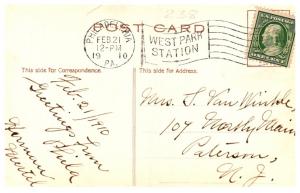 238
POST CARD
PHILADELPHIA
FEB. 21
12-PM
1910
PA.
WEST PARK
STATION
This side for Correspondence.
This side for Address.
Feb. 21/1910
Greetings from
Phila
Herman
Mrs. S. Van Winkle
107 North Main
Paterson,
N. J.